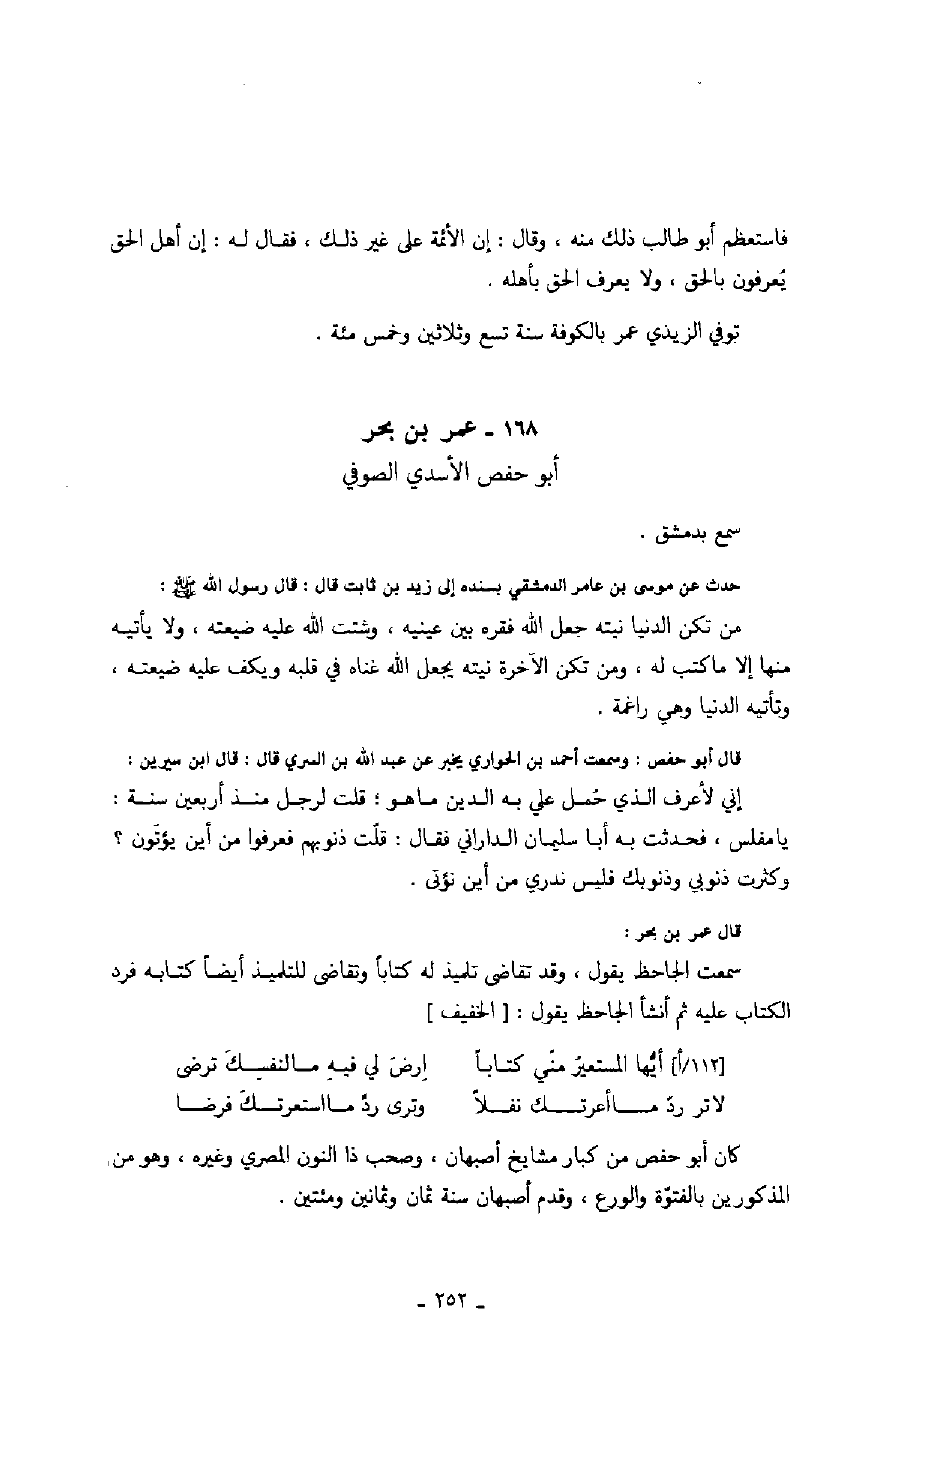 فاستعظم أبو طالب ذلك منه ، وقال : إن الأئمة على غير ذلك ، فقال له : إن أهل الحق
يُعرفون بالحق ، ولا يعرف الحق بأهله .
توفي الزيدي عمر بالكوفة سنة تسع وثلاثين وخمس مئة .
١٦٨ ـ عمر بن بحر
أبو حفص الأسدي الصوفي
سمع بدمشق .
حدث عن موسى بن عامر الدمشقي بسنده إلى زيد بن ثابت قال : قال رسول الله ﷺ :
من تكن الدنيا نيته جعل الله فقره بين عينيه ، وشتت الله عليه ضيعته ، ولا يأتيه
منها إلا ماكتب له ، ومن تكن الآخرة نيته يجعل الله غناه في قلبه ويكف عليه ضيعته ،
وتأتيه الدنيا وهي راغمة .
قال أبو حفص : وسمعت أحمد بن الحواري يخبر عن عبد الله بن السري قال : قال ابن سيرين :
إني لأعرف الذي حُمل علي به الدين ماهو ؛ قلت لرجل منذ أربعين سنة :
يامفلس ، فحدثت به أبا سليمان الداراني فقال : قلّت ذنوبهم فعرفوا من أين يؤتَون ؟
وكثرت ذنوبي وذنوبك فليس ندري من أين نؤتى .
قال عمر بن بحر :
سمعت الجاحظ يقول ، وقد تقاضى تلميذ له كتاباً وتقاضى للتلميذ أيضاً كتابه فرد
الكتاب عليه ثم أنشأ الجاحظ يقول : [ الخفيف ]
[١١٢/أ] أيُّها المستعيرُ منّي كتاباً إرضَ لي فيهِ مالنفسِكَ ترضى
لاتر ردّ ماأعرتك نفلاً وترى ردَّ مااستعرتكَ فرضا
كان أبو حفص من كبار مشايخ أصبهان ، وصحب ذا النون المصري وغيره ، وهو من
المذكورين بالفتوّة والورع ، وقدم أصبهان سنة ثمان وثمانين ومئتين .
ـ ٢٥٢ ـ